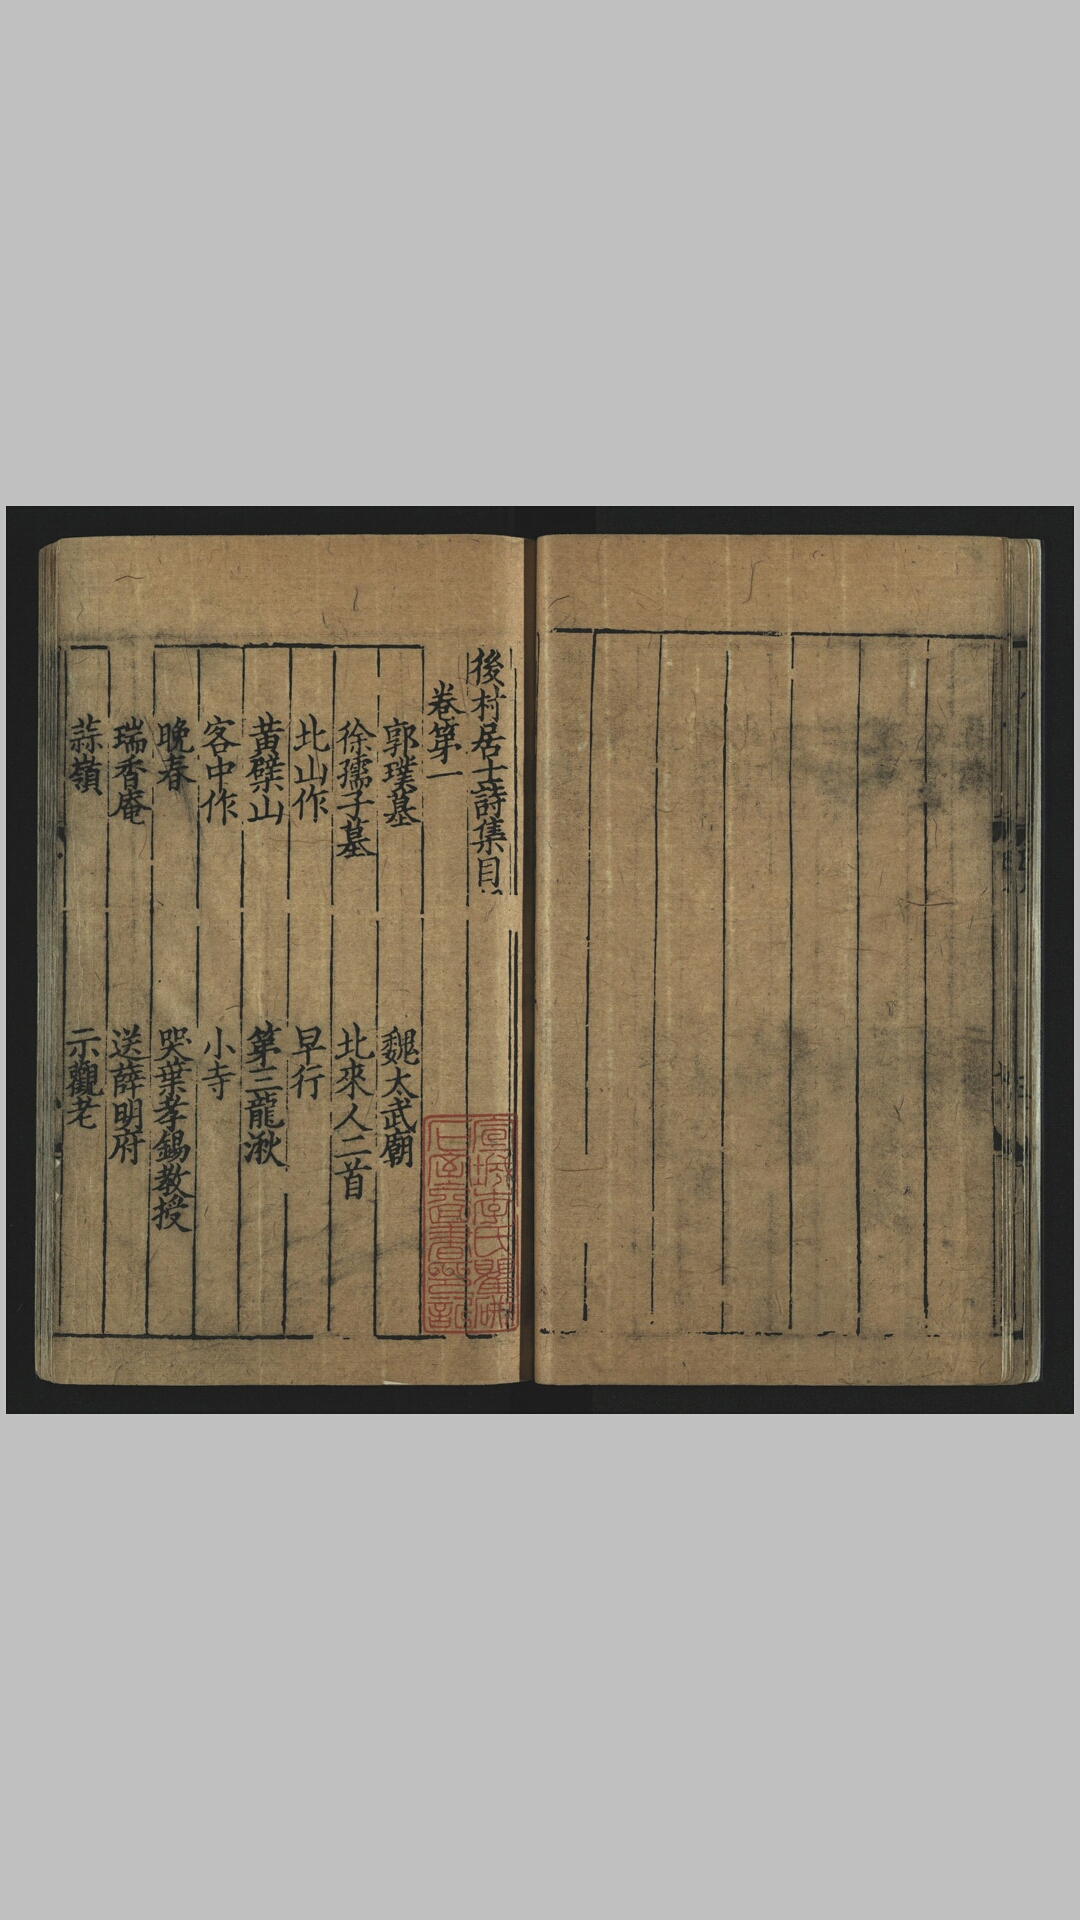 後村居士詩集目
卷第一
郭璞墓 魏太武廟
徐孺子墓 北來人二首
北山作 早行
黃檗山 第三龍湫
客中作 小寺
晚春 哭葉孝錫教授
瑞香庵 送薛明府
蒜嶺 示觀老
宣城李氏瞿硎
石室圖書印記